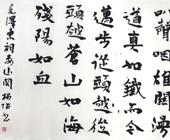 叭聲咽雄關漫
道真如鐵而今
邁步從頭越從
頭越蒼山如海
殘陽如血
毛澤東詞婁山關